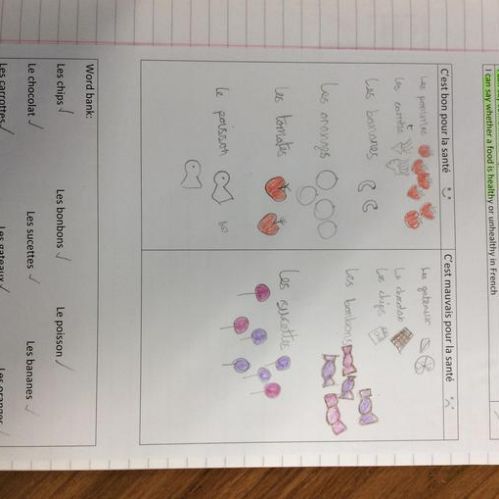 I can say whether a food is healthy or unhealthy in French
C'est bon pour la santé
Les pommes
Les carottes
Les bananes
Les oranges
Les tomates
le poisson
C'est mauvais pour la santé
Les gateaux
Le chocolat
Les chips
Les bonbons
Les sucettes
Word bank:
Les chips Les bonbons Le poisson
Le chocolat Les sucettes Les bananes
Les carottes Les gateaux Les oranges